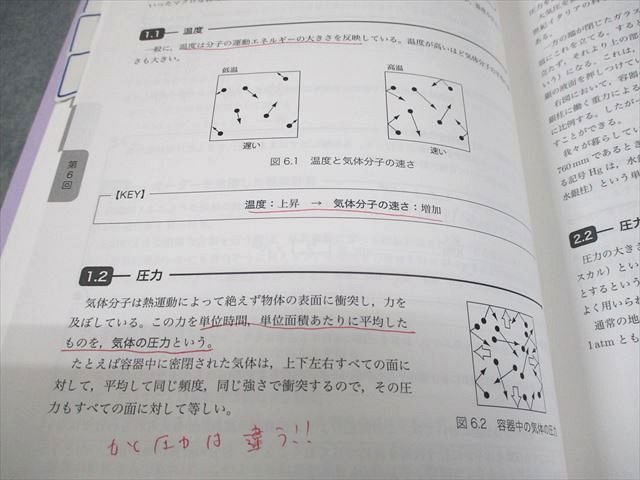 1.1 温度
一般に，温度は分子の運動エネルギーの大きさを反映している。温度が高いほど気体分子の
さも大きい。
低温
高温
遅い
速い
図6.1 温度と気体分子の速さ
第6回
【KEY】
温度：上昇 → 気体分子の速さ：増加
1.2 圧力
気体分子は熱運動によって絶えず物体の表面に衝突し，力を
及ぼしている。この力を単位時間，単位面積あたりに平均した
ものを，気体の圧力という。
たとえば容器中に密閉された気体は，上下左右すべての面に
対して，平均して同じ頻度，同じ強さで衝突するので，その圧
力もすべての面に対して等しい。
図6.2 容器中の気体の圧力
力と圧力は違う!!
ある。
一方の端が閉じたガラス
面にこれを立てる。する
立たず，それより上の部
いう）になる。これは，
銀の液面を押しつけてい
右図において，容器
銀柱に働く重力による
に比例する。したが
すことができる。
我々が暮らしてい
760mmであるとき
る記号Hgは，水
水銀柱）という単
2.2 圧力
圧力の大きさ
スカル）とい
とするという
よく用いられ
通常の地
1atmとも